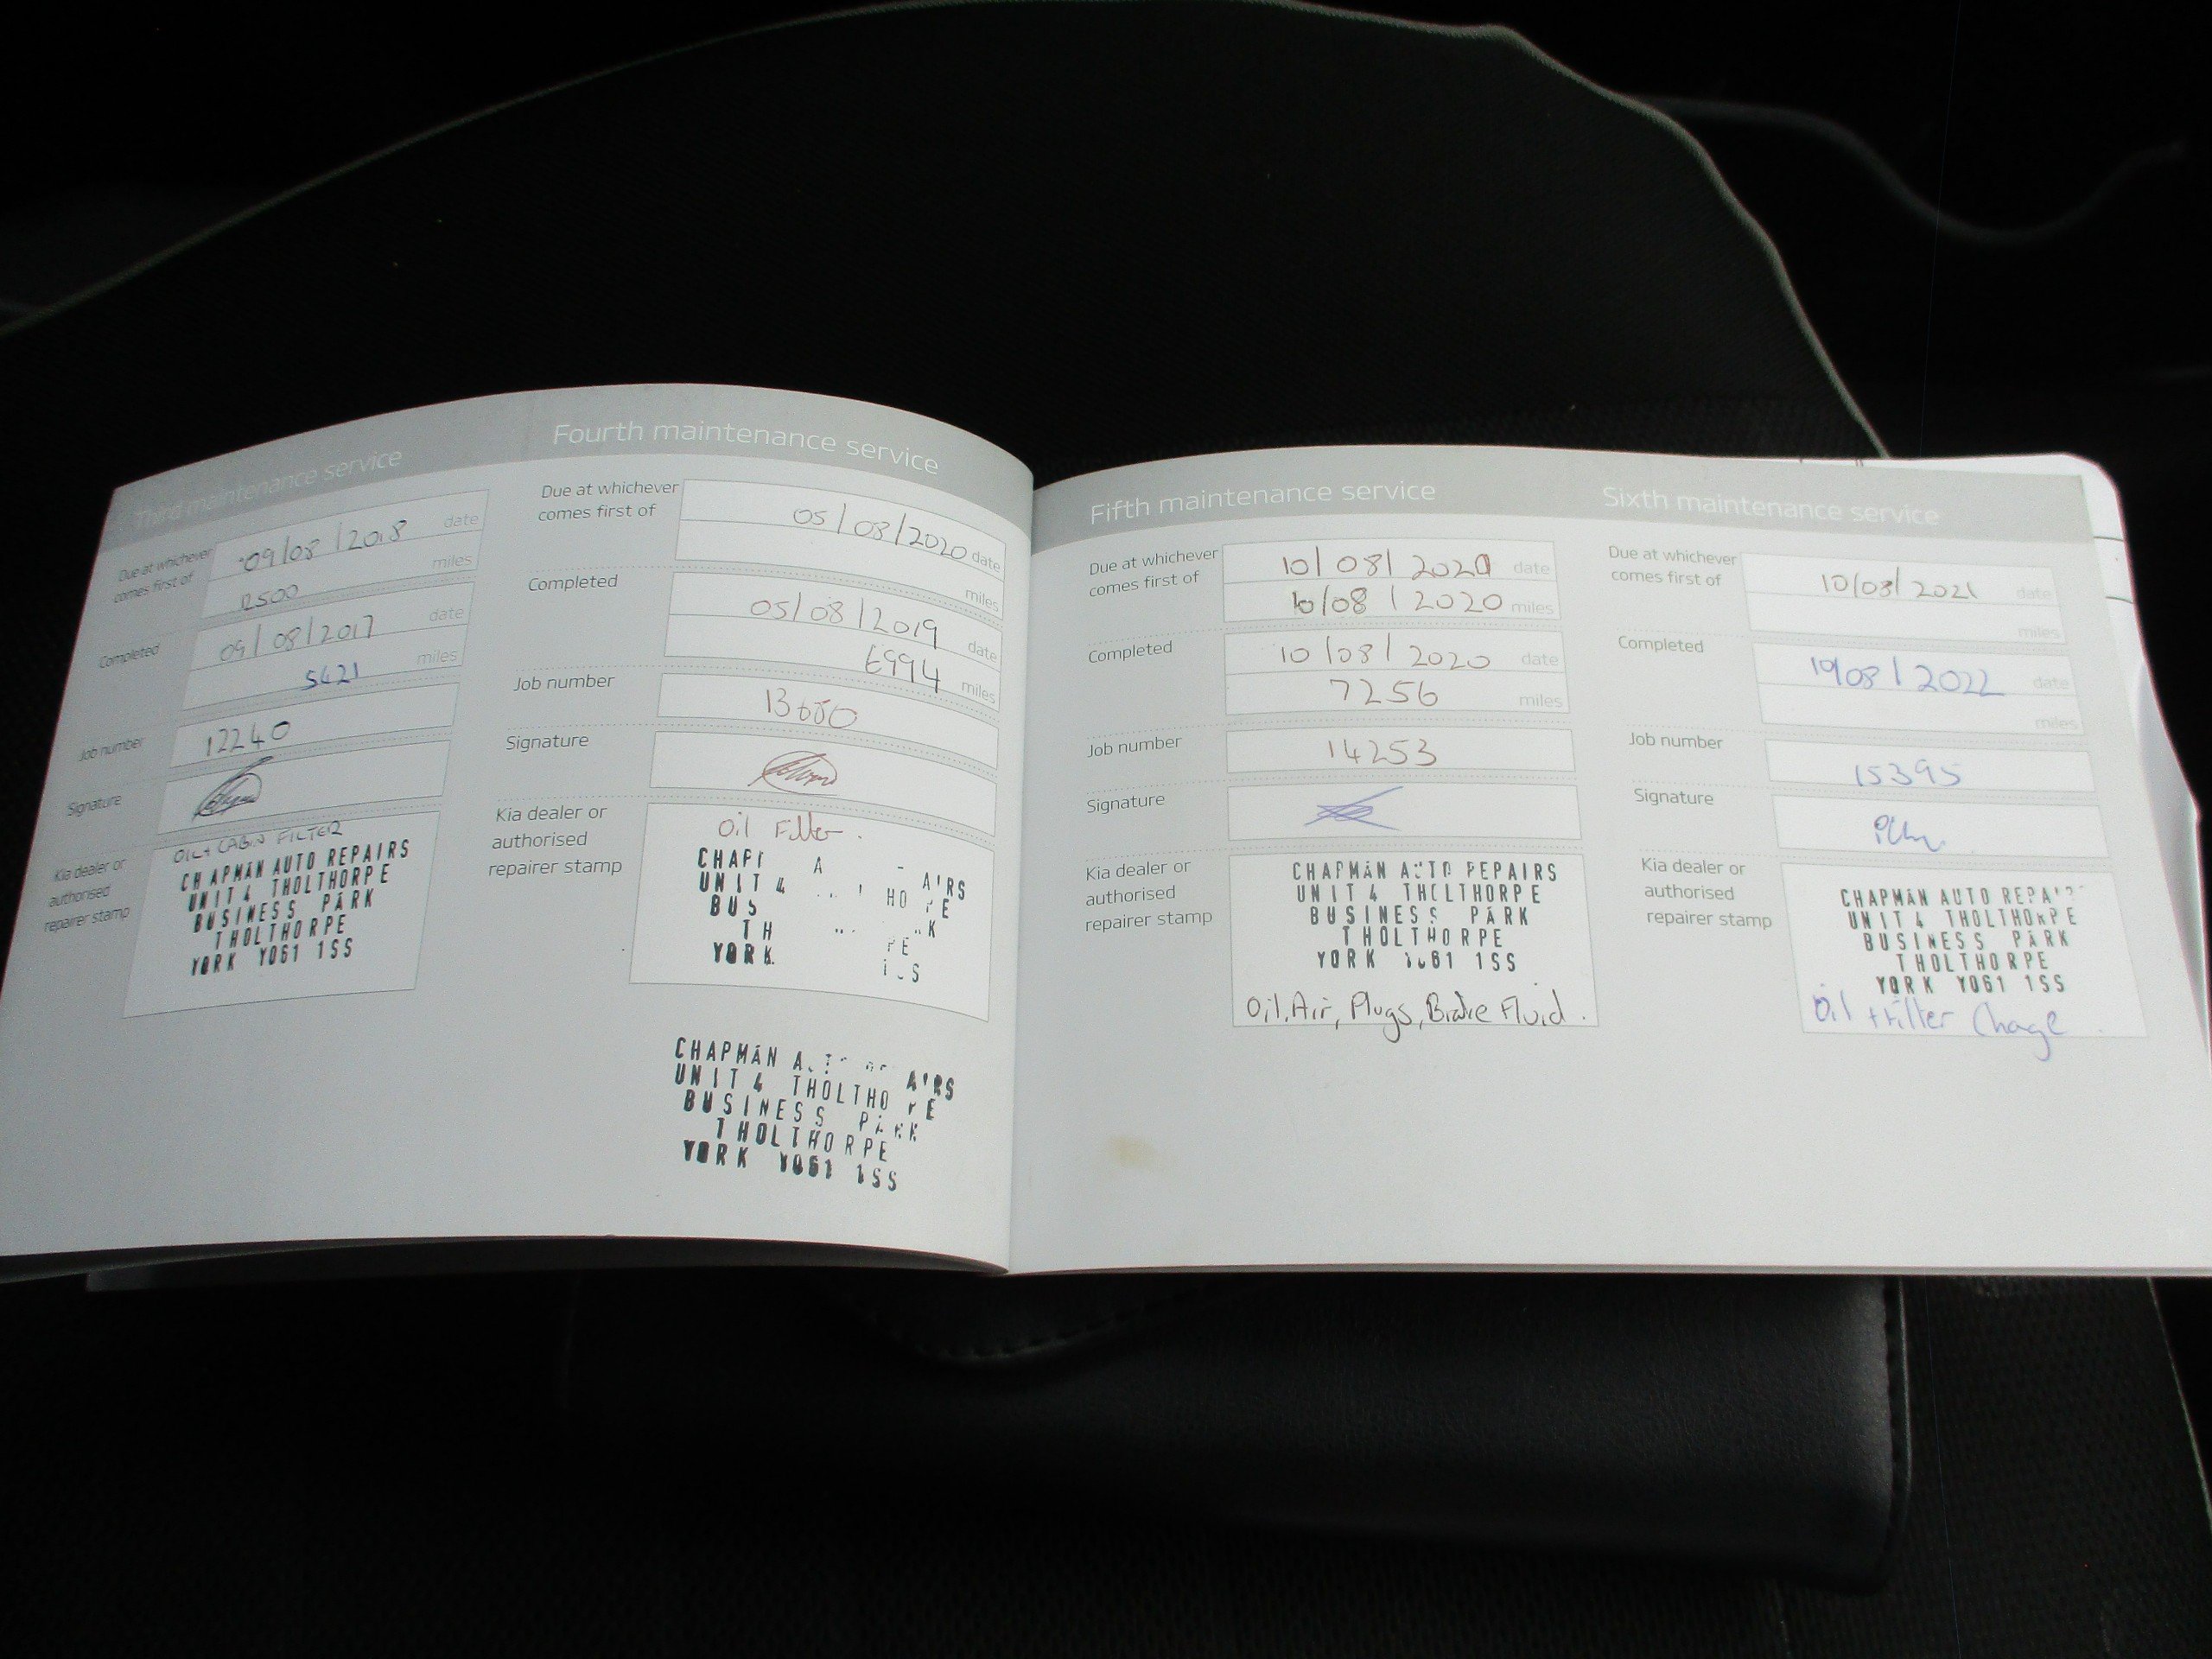 Third maintenance service
Due at whichever
comes first of
09/08/2018 date
12500 miles
Completed
09/08/2017 date
5421 miles
Job number
12240
Signature
Kia dealer or
authorised
repairer stamp
OIL + CABIN FILTER
CHAPMAN AUTO REPAIRS
UNIT 4 THOLTHORPE
BUSINESS PARK
THOLTHORPE
YORK YO61 1SS
Fourth maintenance service
Due at whichever
comes first of
05/08/2020 date
miles
Completed
05/08/2019 date
6994 miles
Job number
Signature
Kia dealer or
authorised
repairer stamp
Oil Filter.
UNIT 4
YORK
CHAPMAN
UNIT 4
BUSINESS PARK
THOLTHORPE
YORK YO61 1SS
Fifth maintenance service
Due at whichever
comes first of
10/08/2020 date
10/08/2020 miles
Completed
10/08/2020 date
7256 miles
Job number
14253
Signature
Kia dealer or
authorised
repairer stamp
CHAPMAN AUTO REPAIRS
UNIT 4 THOLTHORPE
BUSINESS PARK
THOLTHORPE
YORK YO61 1SS
Oil, Air, Plugs, Brake Fluid.
Sixth maintenance service
Due at whichever
comes first of
10/08/2021 date
miles
Completed
10/08/2022 date
miles
Job number
15395
Signature
Kia dealer or
authorised
repairer stamp
CHAPMAN AUTO REPAIRS
UNIT 4 THOLTHORPE
BUSINESS PARK
THOLTHORPE
YORK YO61 1SS
Oil + Filter Chage